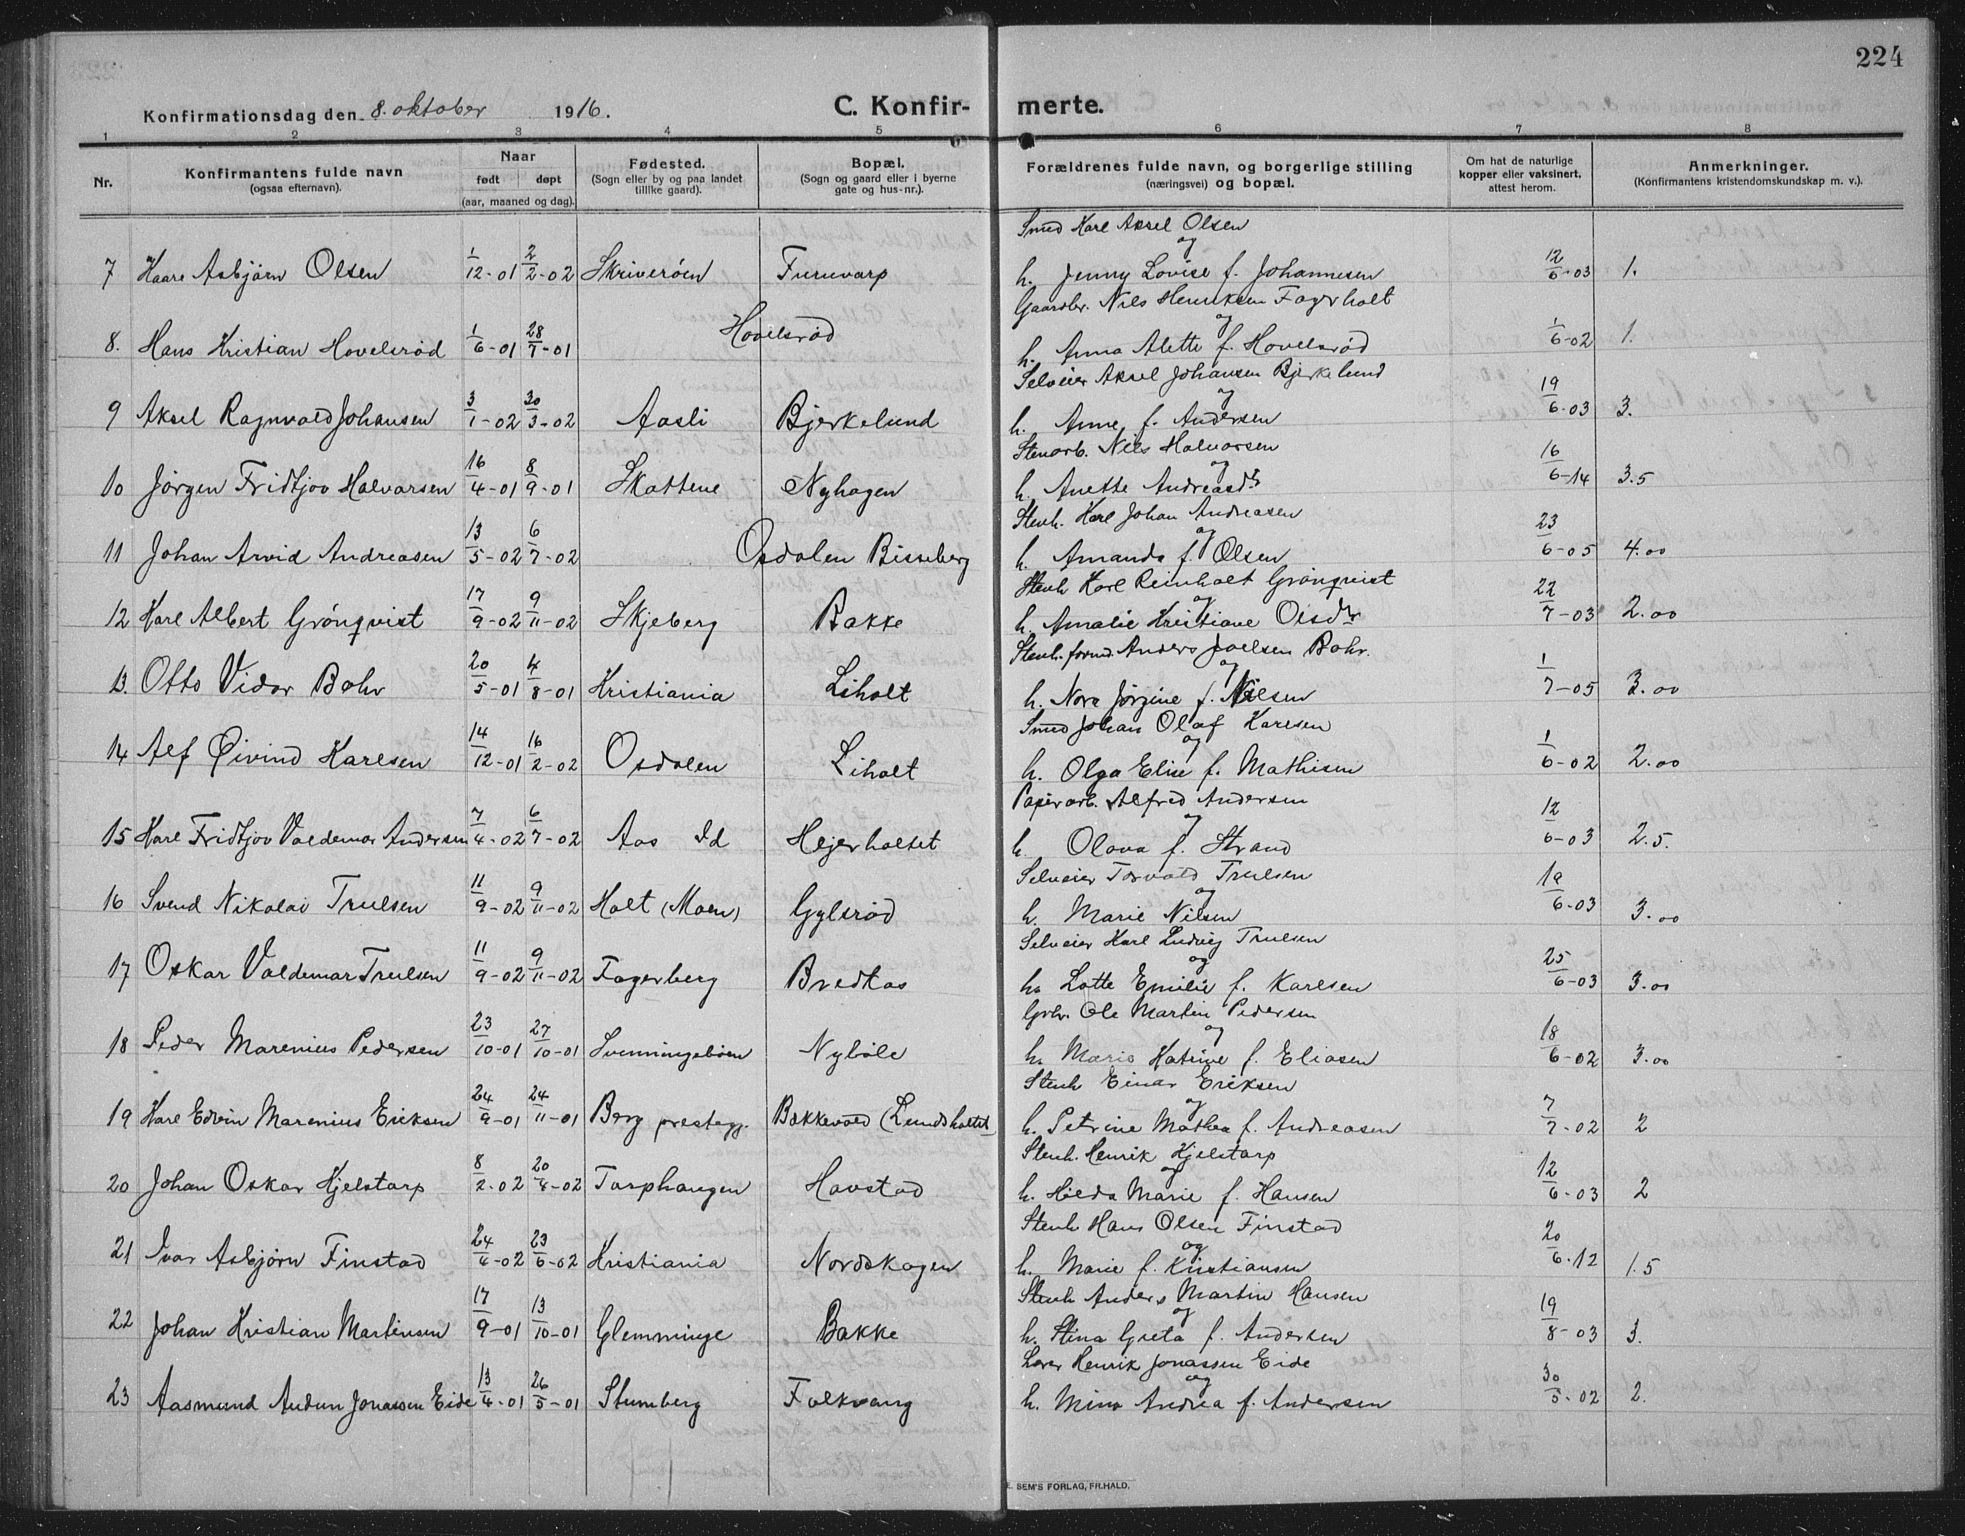 224
Konfirmationsdag den 8. oktober 1916.
C. Konfirmerte.
1 2 3 4 5 6 7 8
Nr.
Konfirmantens fulde navn
(ogsaa efternavn).
Naar
født døpt
(aar, maaned og dag).
Fødested.
(Sogn eller by og paa landet
tillike gaard).
Bopæl.
(Sogn og gaard eller i byerne
gate og hus-nr.).
Forældrenes fulde navn, og borgerlige stilling
(næringsvei) og bopæl.
Om hat de naturlige
kopper eller vaksinert,
attest herom.
Anmerkninger.
(Konfirmantens kristendomskundskap m. v.).
Smed Karl Aksel Olsen
og
7 Kaare Asbjørn Olsen 1/12-01 2/2-02 Skriverøen Furuvarp h. Jenny Lovise f. Johannesen 12/6-03 1.
Gaardbr. Nils Henriksen Fagerholt
og
8. Hans Kristian Hovelsrød 1/6-01 28/7-01 Hovelsrød h. Anna Alette f. Hovelsrød 1/6-02 1.
Selveier Aksel Johansen Bjerkelund
og
9 Aksel Ragnvald Johansen 3/1-02 30/3-02 Aasli Bjerkelund h. Anne f. Andersen 19/6-03 3.
Stenarb. Nils Halvorsen
og
10 Jørgen Fridtjov Halvorsen 16/4-01 8/9-01 Skattene Nyhagen h. Anette Andreasdr 16/6-14 3.5
Stenh. Karl Johan Andreasen
og
11 Johan Arvid Andreasen 13/5-02 6/7-02 Osdalen Bisseberg h. Amanda f. Olsen 23/6-05 4.00
Stenh Karl Reinholt Grönqvist
og
12 Karl Albert Grönqvist 17/9-02 9/11-02 Skjeberg Bakke h. Amalie Kristiane Olsdr 22/7-03 2.00
Stenh. formd. Anders Joelsen Bohr.
og
13. Otto Vidar Bohr 20/5-01 4/8-01 Kristiania Liholt h. Nora Jørgine f. Nilsen 1/7-05 3.00
Smed Johan Olaf Karlsen
og
14 Alf Øivind Karlsen 14/12-01 16/2-02 Osdalen Liholt h. Olga Elise f. Mathisen 1/6-02 2.00
Papirarb. Alfred Andersen
og
15 Karl Fridtjov Valdemar Andersen 7/4-02 6/7-02 Aas Id Hejerholtet h. Olava f. Strand 12/6-03 2.5.
Selveier Torvald Trulsen
og
16 Svend Nikolai Trulsen 11/9-02 9/11-02 Holt (Moen) Gylsrød h. Marie Nilsen 19/6-03 3.00
Selveier Karl Ludvig Trulsen
og
17 Oskar Valdemar Trulsen 11/9-02 9/11-02 Fagerberg Bredkas h. Lotte Emilie f. Karlsen 25/6-03 3.00
Grbr. Ole Martin Pedersen
og
18 Peder Marenius Pedersen 23/10-01 27/10-01 Svenningsbøen Nybøle h. Maria Katrine f. Eliasen 18/6-02 3.00
Stenh Einar Eriksen
og
19 Karl Edvin Marenius Eriksen 24/9-01 24/11-01 Berg prestegj. Bakkevold (Lundsholtet h. Petrine Mathea f. Andreasen 7/7-02 2
Stenh. Henrik Hjelstarp
og
20 Johan Oskar Hjelstarp 8/2-02 20/4-02 Torphaugen Havstad h. Hilda Marie f. Hansen 12/6-03 2
Stenh Hans Olsen Finstad
og
21 Ivar Asbjørn Finstad 24/4-02 23/6-02 Kristiania Nordskogen h. Marie f. Kristiansen 20/6-12 1.5
Stenh Anders Martin Hansen
og
22 Johan Kristian Martinsen 17/9-01 13/10-01 Glemminge Bakke h. Stina Greta f. Andersen 19/8-03 3.
Lærer Henrik Jonassen Eide
og
23 Aasmund Audun Jonassen Eide 13/4-01 26/5-01 Stumberg Folkvang h. Mina Andrea f. Andersen 30/5-02 2.
E. SEM'S FORLAG, FR.HALD.